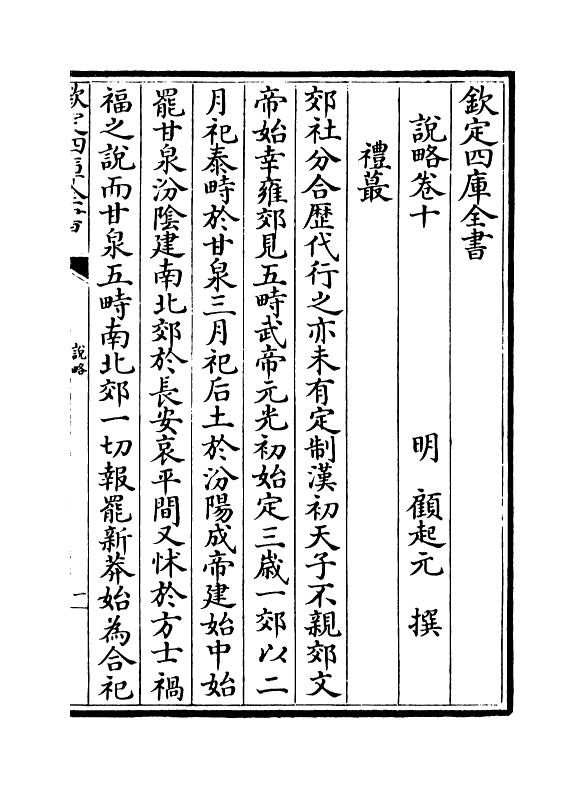 欽定四庫全書
說略卷十　明　顧起元　撰
禮蕞
郊社分合歴代行之亦未有定制漢初天子不親郊文
帝始幸雍郊見五畤武帝元光初始定三歲一郊以二
月祀泰畤於甘泉三月祀后土於汾陽成帝建始中始
罷甘泉汾陰建南北郊於長安哀平間又怵於方士禍
福之說而甘泉五畤南北郊一切報罷新莽始為合祀
欽定四庫全書
說略
一